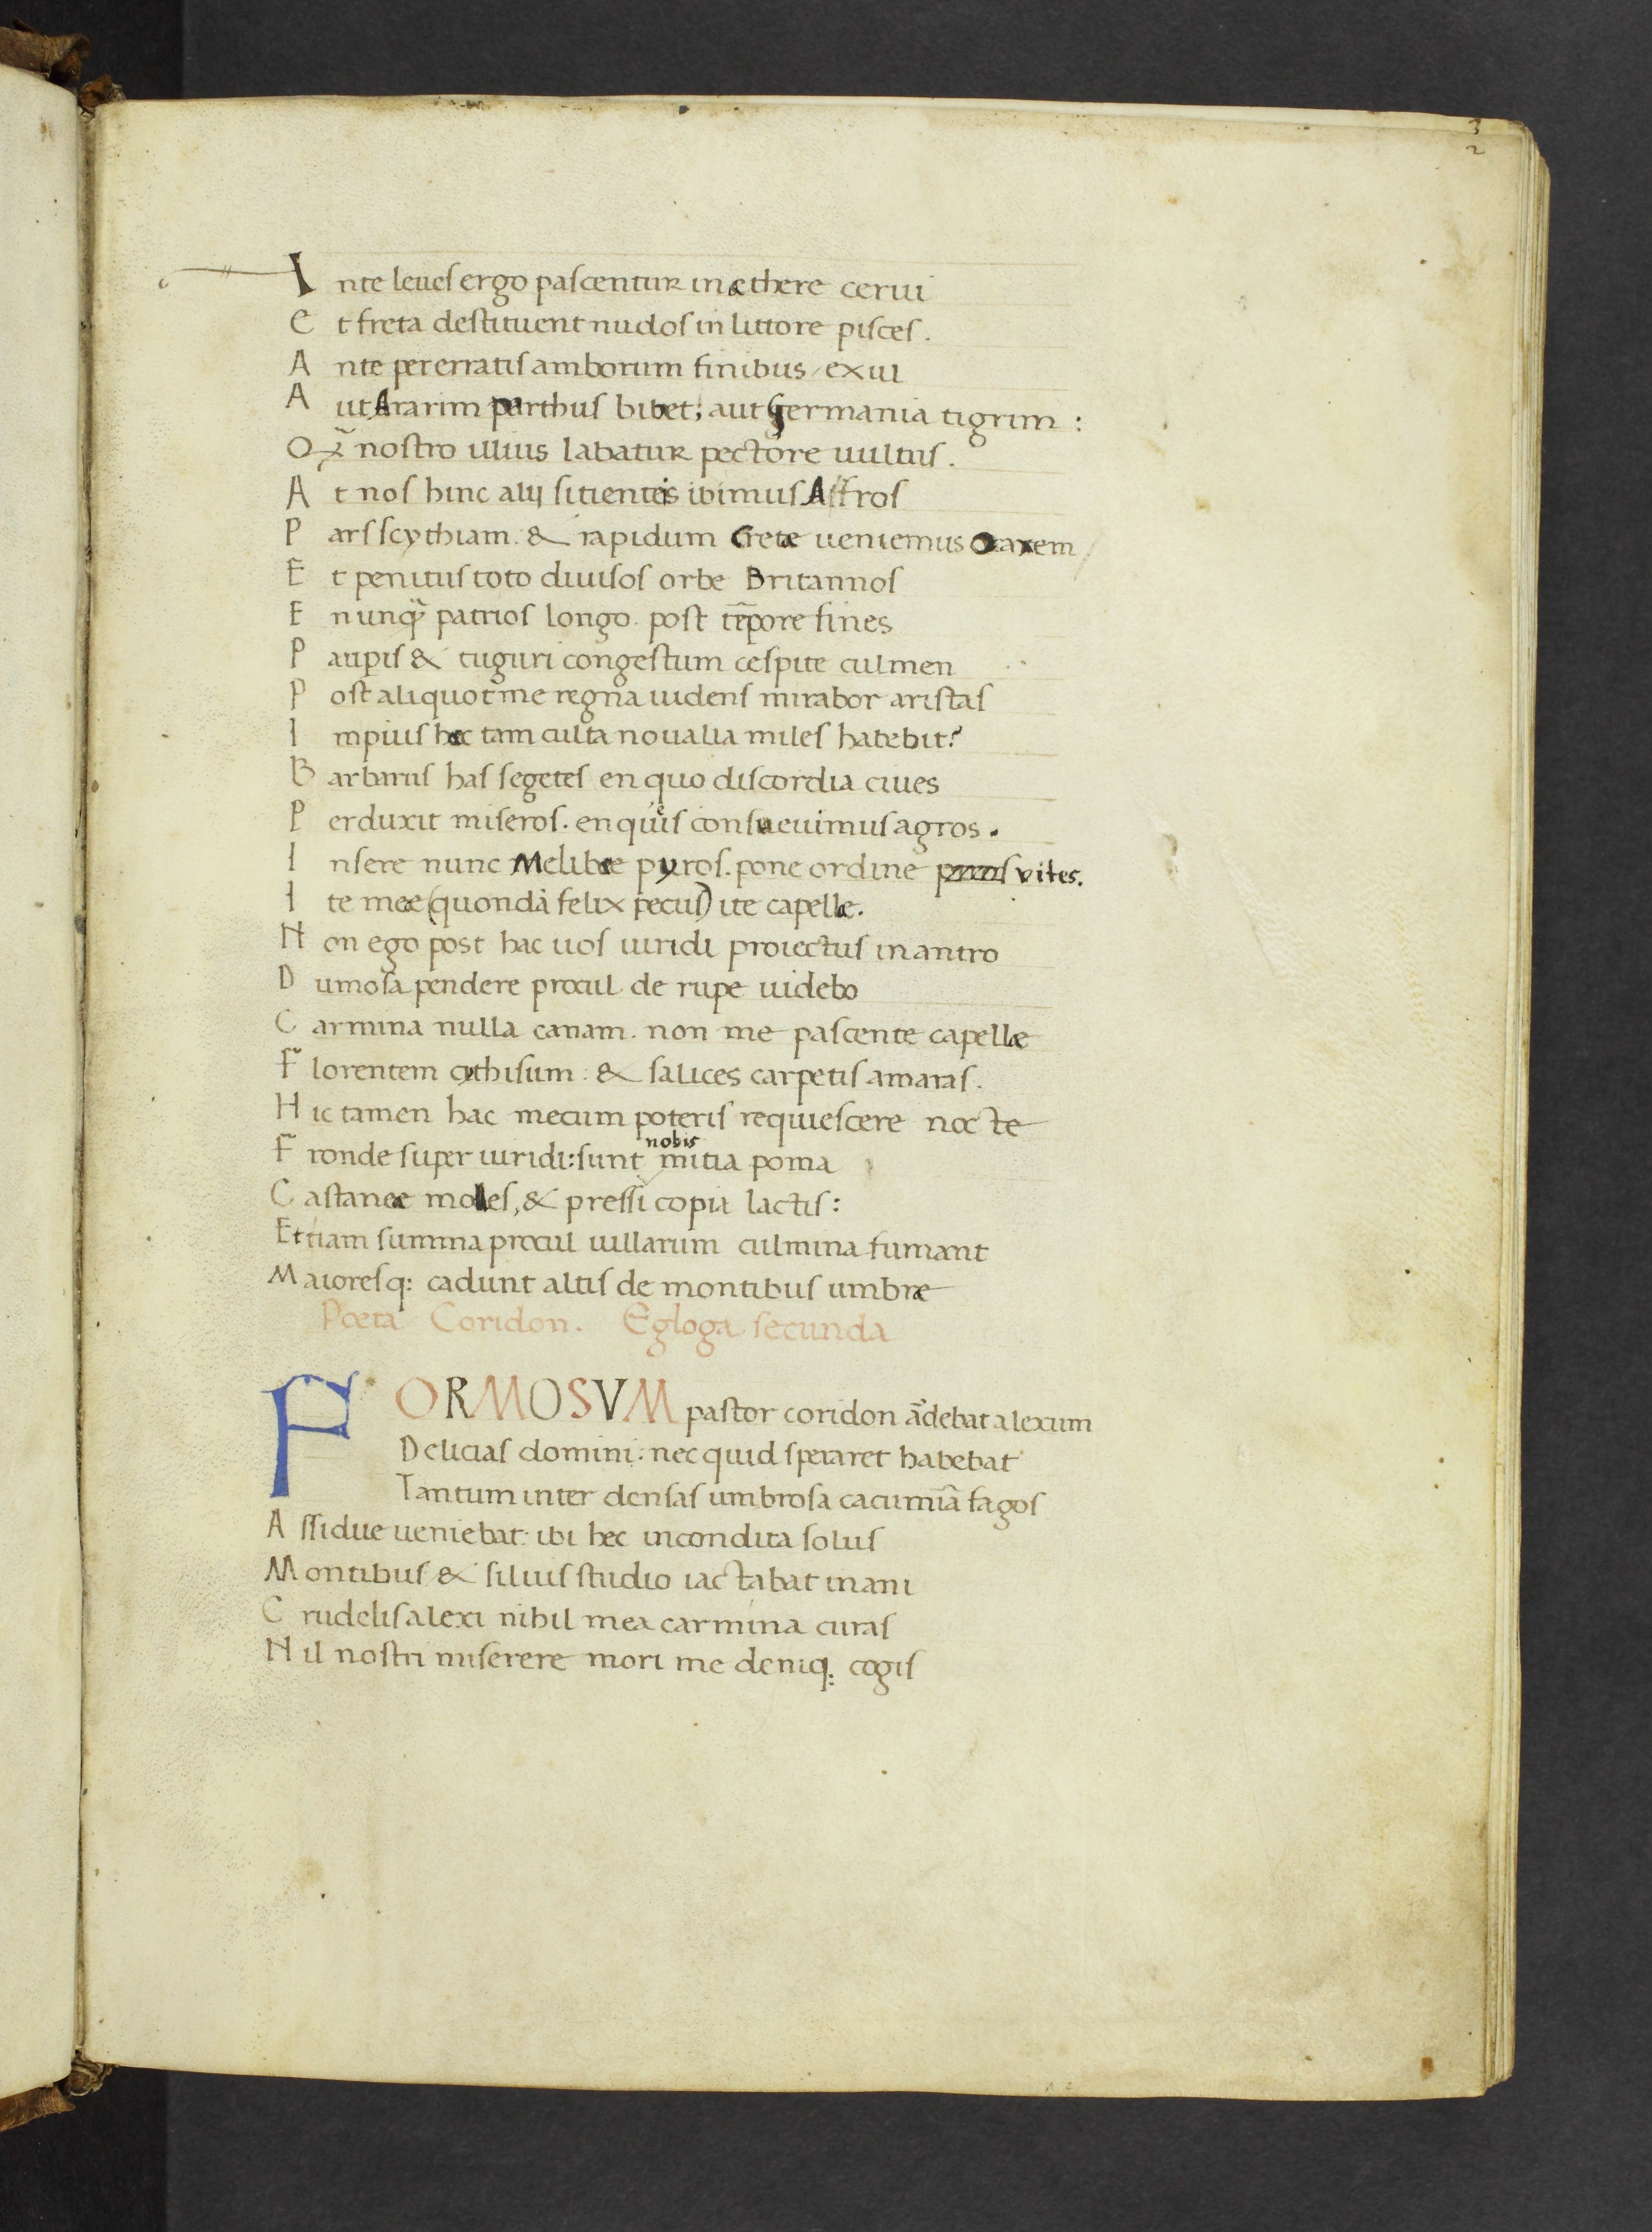 3
2
Inte leues ergo pascentur in æthere cerui
Et freta destituent nudos in littore pisces.
Ante pererratis amborum finibus / exul
Aut Ararim parthus bibet; aut Germania tigrim:
Qr̃ nostro illius labatur pectore uultus.
At nos hinc alij sitientis ibimus Affros
Pars scythiam. & rapidum Cretæ ueniemus Oaxem
Et penitus toto diuisos orbe Britannos
En unq̃ patrios longo. post tẽpore fines
Paupis & tuguri congestum cespite culmen
Post aliquot mea regna uidens mirabor aristas
Impius hæc tam culta noualia miles habebit?
Barbarus has segetes en quo discordia ciues
Perduxit miseros. en queis consueuimus agros.
Insere nunc Melibæe pyros. pone ordine vites.
Ite meæ (quondã felix pecus) ite capellæ.
Non ego post hac uos uiridi proiectus in antro
Dumosa pendere procul de rupe uidebo
Carmina nulla canam. non me pascente capellæ
Florentem cythisum: & salices carpetis amaras.
Hic tamen hac mecum poteris requiescere nocte
nobis
Fronde super uiridi: sunt mitia poma
Castaneæ molles, & pressi copia lactis:
Et iam summa procul uillarum culmina fumant
Maioresq: cadunt altis de montibus umbræ
Poeta Coridon. Egloga secunda
FORMOSVM pastor coridon ãdebat alexum
Delicias domini: nec quid speraret habebat
Tantum inter densas umbrosa cacumiã fagos
Assidue ueniebat: ibi hec incondita solus
Montibus & siluis studio iactabat inani
Crudelis alexi nihil mea carmina curas
Nil nostri miserere mori me deniq: cogis